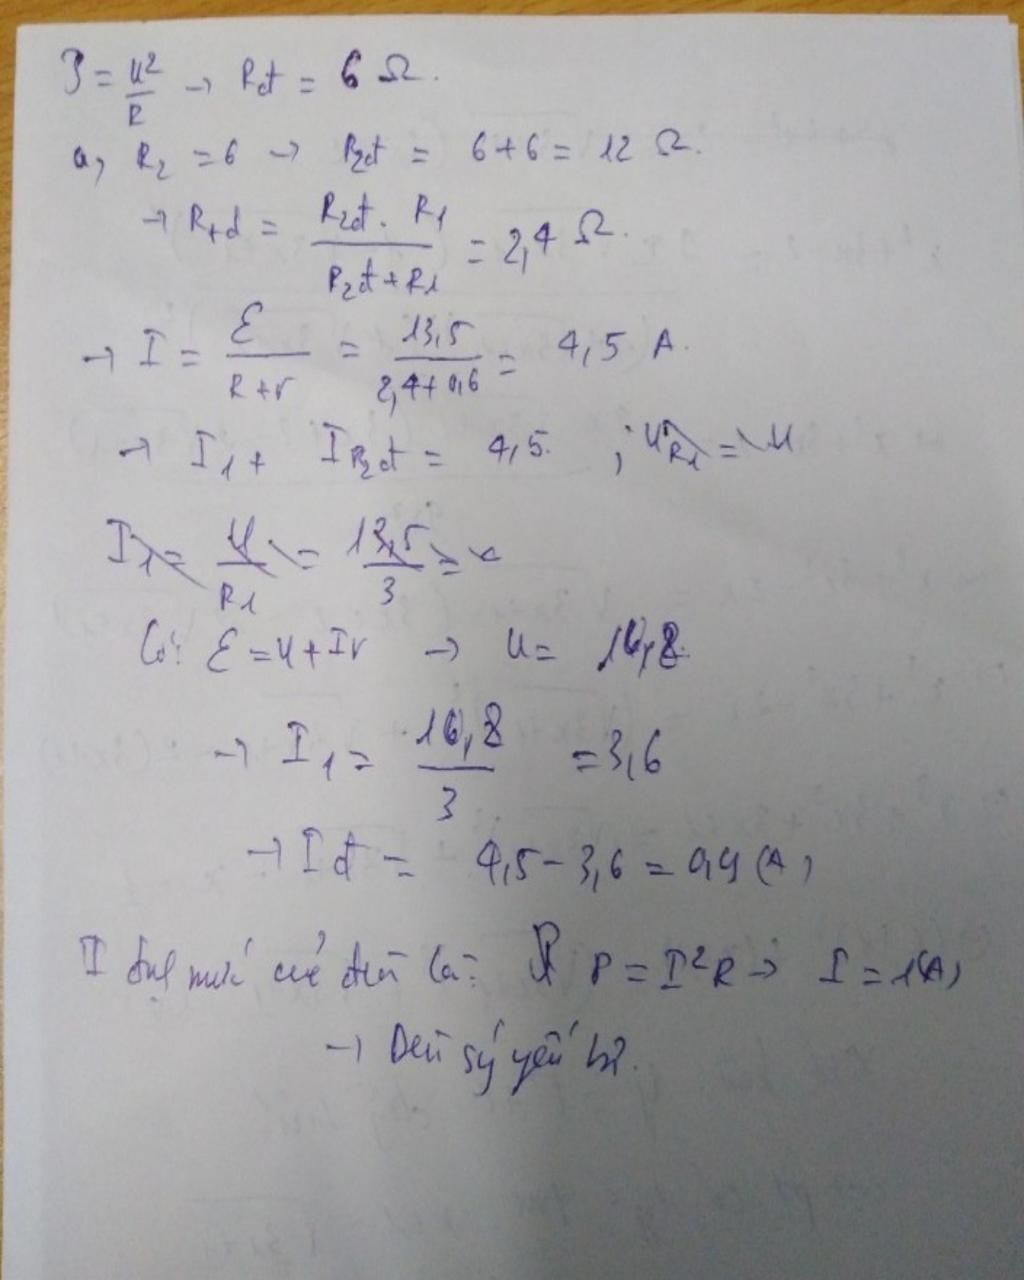 P = U²/R → Rđ = 6 Ω.
a, R₂ = 6 → R₂đ = 6+6 = 12 Ω.
→ Rtđ = (R₂đ . R₁)/(R₂đ + R₁) = 2,4 Ω.
→ I = ℰ/(R+r) = 13,5/(2,4+0,6) = 4,5 A.
→ I₁ + I R₂đ = 4,5. ; U R₁ = U
I₁ = U/R₁ = 13,5/3 =
Có: ℰ = U + Ir → U = 10,8.
→ I₁ = 10,8/3 = 3,6
→ Iđ = 4,5 - 3,6 = 0,9 (A)
I định mức của đèn là: P = I²R → I = 1(A)
→ Đèn sáng yếu hơn.